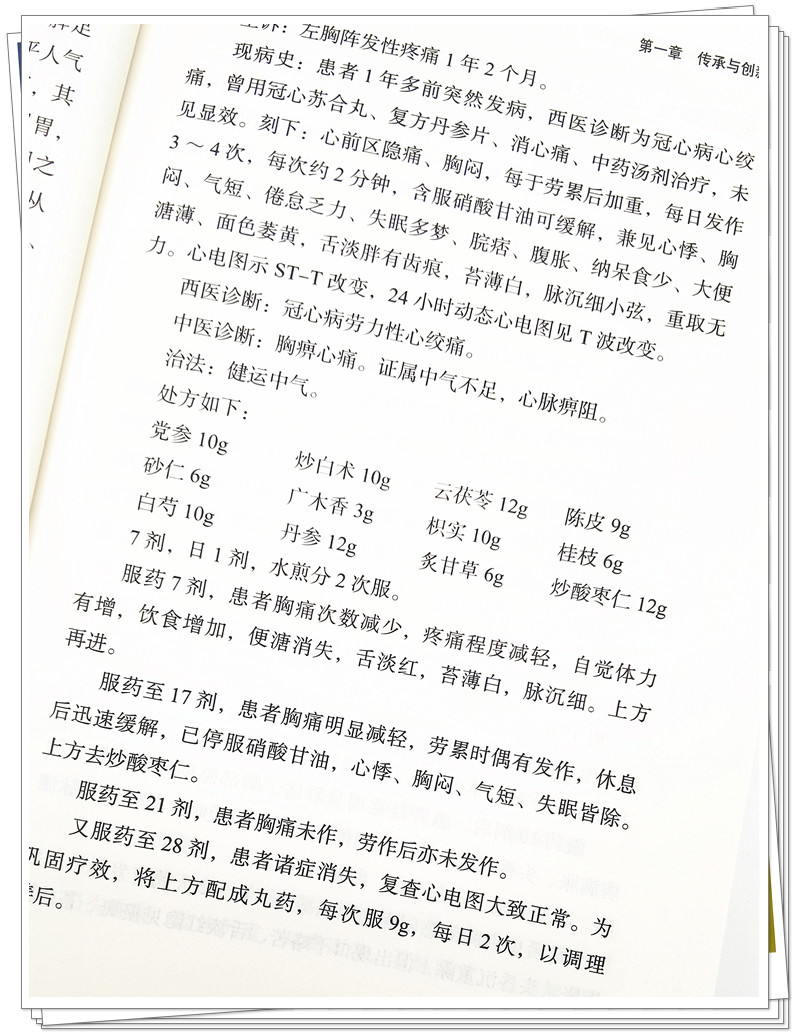 第一章 传承与创新
主诉：左胸阵发性疼痛1年2个月。
现病史：患者1年多前突然发病，西医诊断为冠心病心绞
痛，曾用冠心苏合丸、复方丹参片、消心痛、中药汤剂治疗，未
见显效。刻下：心前区隐痛、胸闷，每于劳累后加重，每日发作
3～4次，每次约2分钟，含服硝酸甘油可缓解，兼见心悸、胸
闷、气短、倦怠乏力、失眠多梦、脘痞、腹胀、纳呆食少、大便
溏薄、面色萎黄，舌淡胖有齿痕，苔薄白，脉沉细小弦，重取无
力。心电图示ST-T改变，24小时动态心电图见T波改变。
西医诊断：冠心病劳力性心绞痛。
中医诊断：胸痹心痛。证属中气不足，心脉痹阻。
治法：健运中气。
处方如下：
党参10g 炒白术10g 云茯苓12g 陈皮9g
砂仁6g 广木香3g 枳实10g 桂枝6g
白芍10g 丹参12g 炙甘草6g 炒酸枣仁12g
7剂，日1剂，水煎分2次服。
服药7剂，患者胸痛次数减少，疼痛程度减轻，自觉体力
有增，饮食增加，便溏消失，舌淡红，苔薄白，脉沉细。上方
再进。
服药至17剂，患者胸痛明显减轻，劳累时偶有发作，休息
后迅速缓解，已停服硝酸甘油，心悸、胸闷、气短、失眠皆除。
上方去炒酸枣仁。
服药至21剂，患者胸痛未作，劳作后亦未发作。
又服药至28剂，患者诸症消失，复查心电图大致正常。为
巩固疗效，将上方配成丸药，每次服9g，每日2次，以调理
善后。
人气
，其
胃，
之
从
、